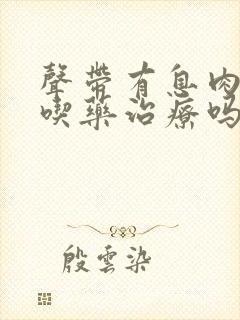 聲帶有息肉
喫藥治療嗎
殷雲染